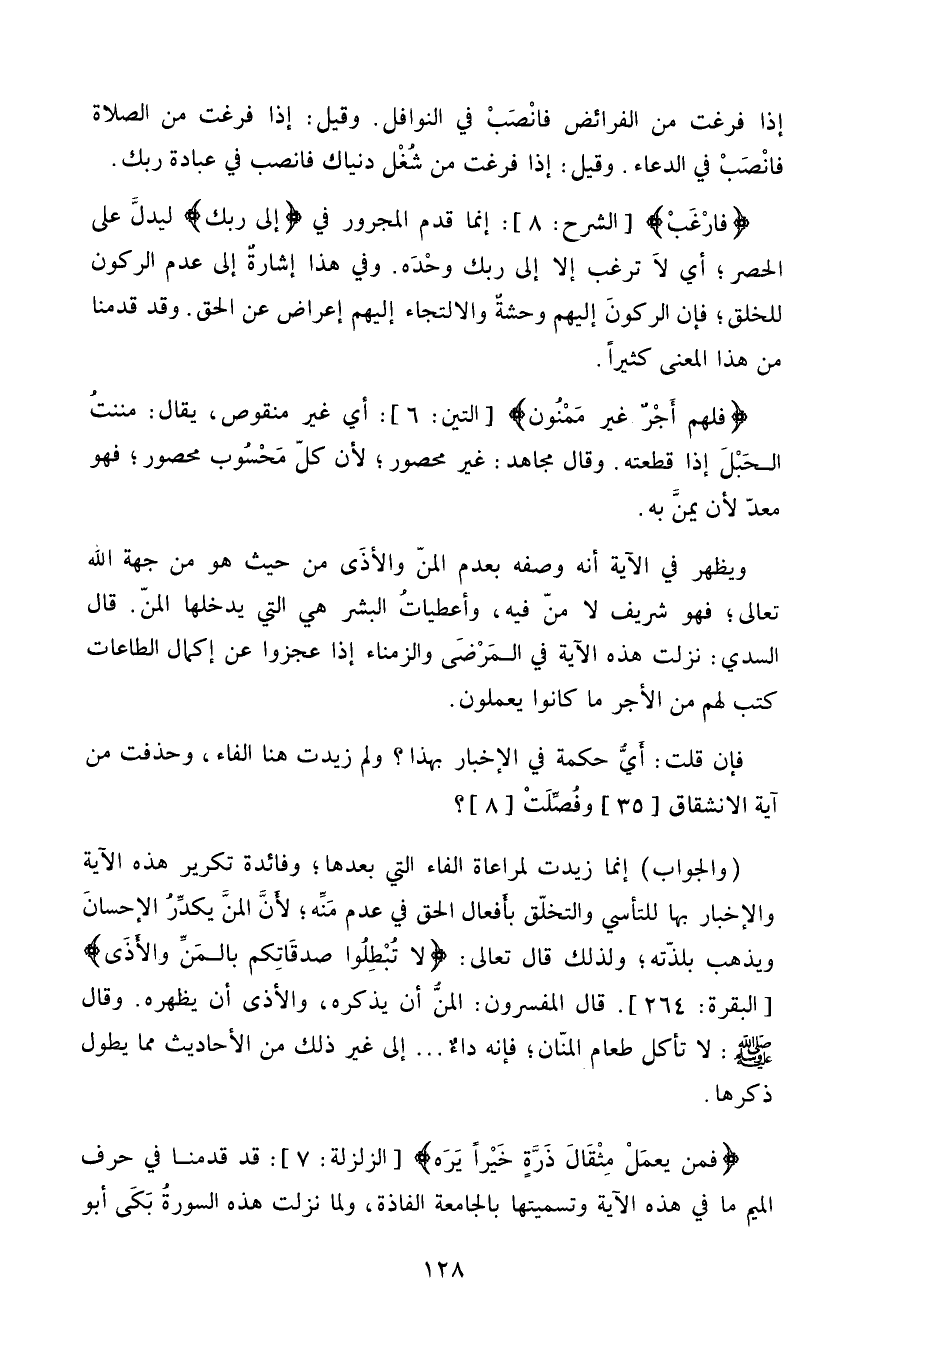 إذا فرغت من الفرائض فانْصَبْ في النوافل. وقيل: إذا فرغت من الصلاة
فانْصَبْ في الدعاء. وقيل: إذا فرغت من شُغْل دنياك فانصب في عبادة ربك.
﴿فارْغَبْ﴾ [الشرح: ٨]: إنما قدم المجرور في ﴿إلى ربك﴾ ليدلَّ على
الحصر؛ أي لاَ ترغب إلا إلى ربك وحْدَه. وفي هذا إشارةٌ إلى عدم الركون
للخلق؛ فإن الركونَ إليهم وحشةٌ والالتجاء إليهم إعراض عن الحق. وقد قدمنا
من هذا المعنى كثيراً.
﴿فلهم أَجْرٌ غير مَمْنُون﴾ [التين: ٦]: أي غير منقوص، يقال: مننتُ
الـحَبْلَ إذا قطعته. وقال مجاهد: غير محصور؛ لأن كلّ مَحْسُوب محصور؛ فهو
معدّ لأن يمنَّ به.
ويظهر في الآية أنه وصفه بعدم المنّ والأذَى من حيث هو من جهة الله
تعالى؛ فهو شريف لا منّ فيه، وأعطياتُ البشر هي التي يدخلها المنّ. قال
السدي: نزلت هذه الآية في الـمَرْضَى والزمناء إذا عجزوا عن إكمال الطاعات
كتب لهم من الأجر ما كانوا يعملون.
فإن قلت: أَيُّ حكمة في الإخبار بهذا؟ ولم زيدت هنا الفاء، وحذفت من
آية الانشقاق [٣٥] وفُصِّلَتْ [٨]؟
(والجواب) إنما زيدت لمراعاة الفاء التي بعدها؛ وفائدة تكرير هذه الآية
والإخبار بها للتأسي والتخلّق بأفعال الحق في عدم مَنِّه؛ لأنَّ المنَّ يكدِّرُ الإحسانَ
ويذهب بلذّته؛ ولذلك قال تعالى: ﴿لا تُبْطِلُوا صدقَاتِكم بالـمَنِّ والأَذَى﴾
[البقرة: ٢٦٤]. قال المفسرون: المنُّ أن يذكره، والأذى أن يظهره. وقال
ﷺ: لا تأكل طعام المنّان؛ فإنه داءٌ... إلى غير ذلك من الأحاديث مما يطول
ذكرها.
﴿فمن يعمَلْ مِثْقَالَ ذَرَّةٍ خَيْراً يَرَه﴾ [الزلزلة: ٧]: قد قدمنـا في حرف
الميم ما في هذه الآية وتسميتها بالجامعة الفاذة، ولما نزلت هذه السورةُ بَكَى أبو
١٢٨